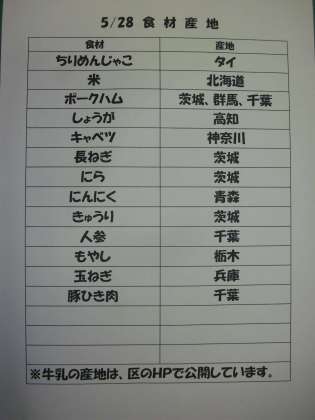 5/28 食材産地
食材 産地
ちりめんじゃこ タイ
米 北海道
ポークハム 茨城、群馬、千葉
しょうが 高知
キャベツ 神奈川
長ねぎ 茨城
にら 茨城
にんにく 青森
きゅうり 茨城
人参 千葉
もやし 栃木
玉ねぎ 兵庫
豚ひき肉 千葉
※牛乳の産地は、区のHPで公開しています。